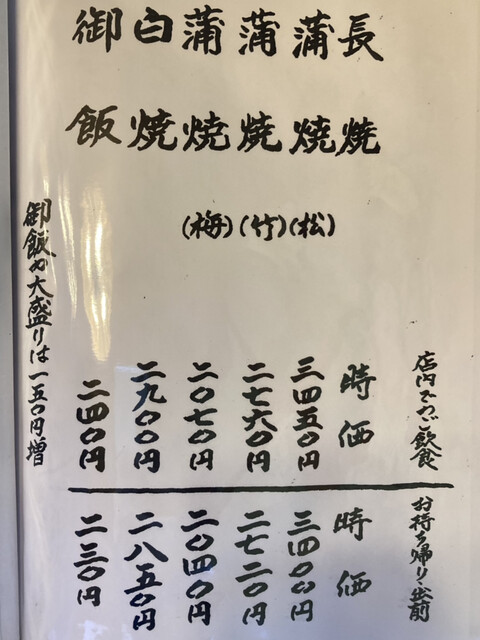 店内でのご飲食 お持ち帰り 出前
長焼 時価 時価
蒲焼(松) 三四五〇円 三四〇〇円
蒲焼(竹) 二七六〇円 二七二〇円
蒲焼(梅) 二〇七〇円 二〇四〇円
白焼 二九〇〇円 二八五〇円
御飯 二四〇円 二三〇円
御飯の大盛りは一五〇円増